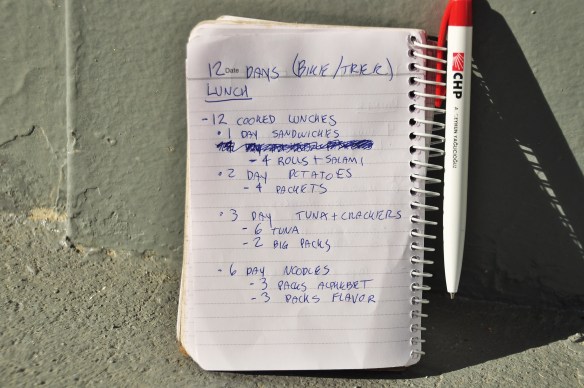 12 Date DAYS (BIKE/TREK)
LUNCH
- 12 COOKED LUNCHES
• 1 DAY SANDWICHES
- 4 ROLLS + SALAMI
• 2 DAY POTATOES
- 4 PACKETS
• 3 DAY TUNA + CRACKERS
- 6 TUNA
- 2 BIG PACKS
- 6 DAY NOODLES
- 3 PACKS ALPHABET
- 3 PACKS FLAVOR
CHP